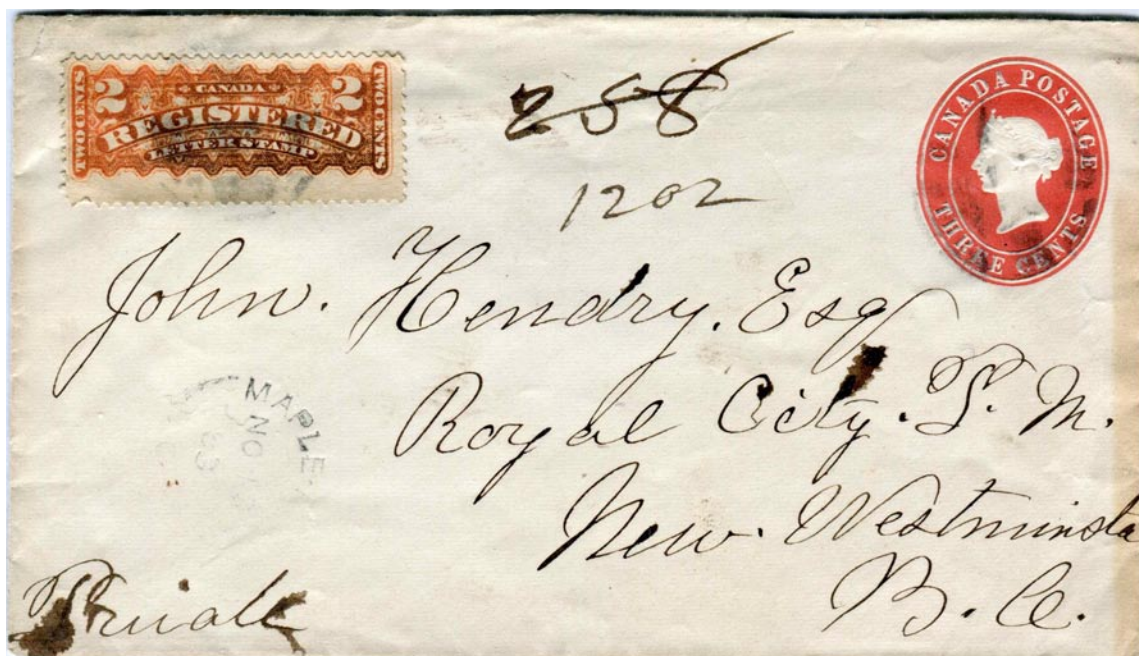 TWO CENTS 2 CANADA 2 TWO CENTS
REGISTERED
LETTER STAMP
258
1202
CANADA POSTAGE
THREE CENTS
John. Hendry. Esq
Royal City. P. M.
New. Westminster
B. C.
MAPLE
NO
83
Private